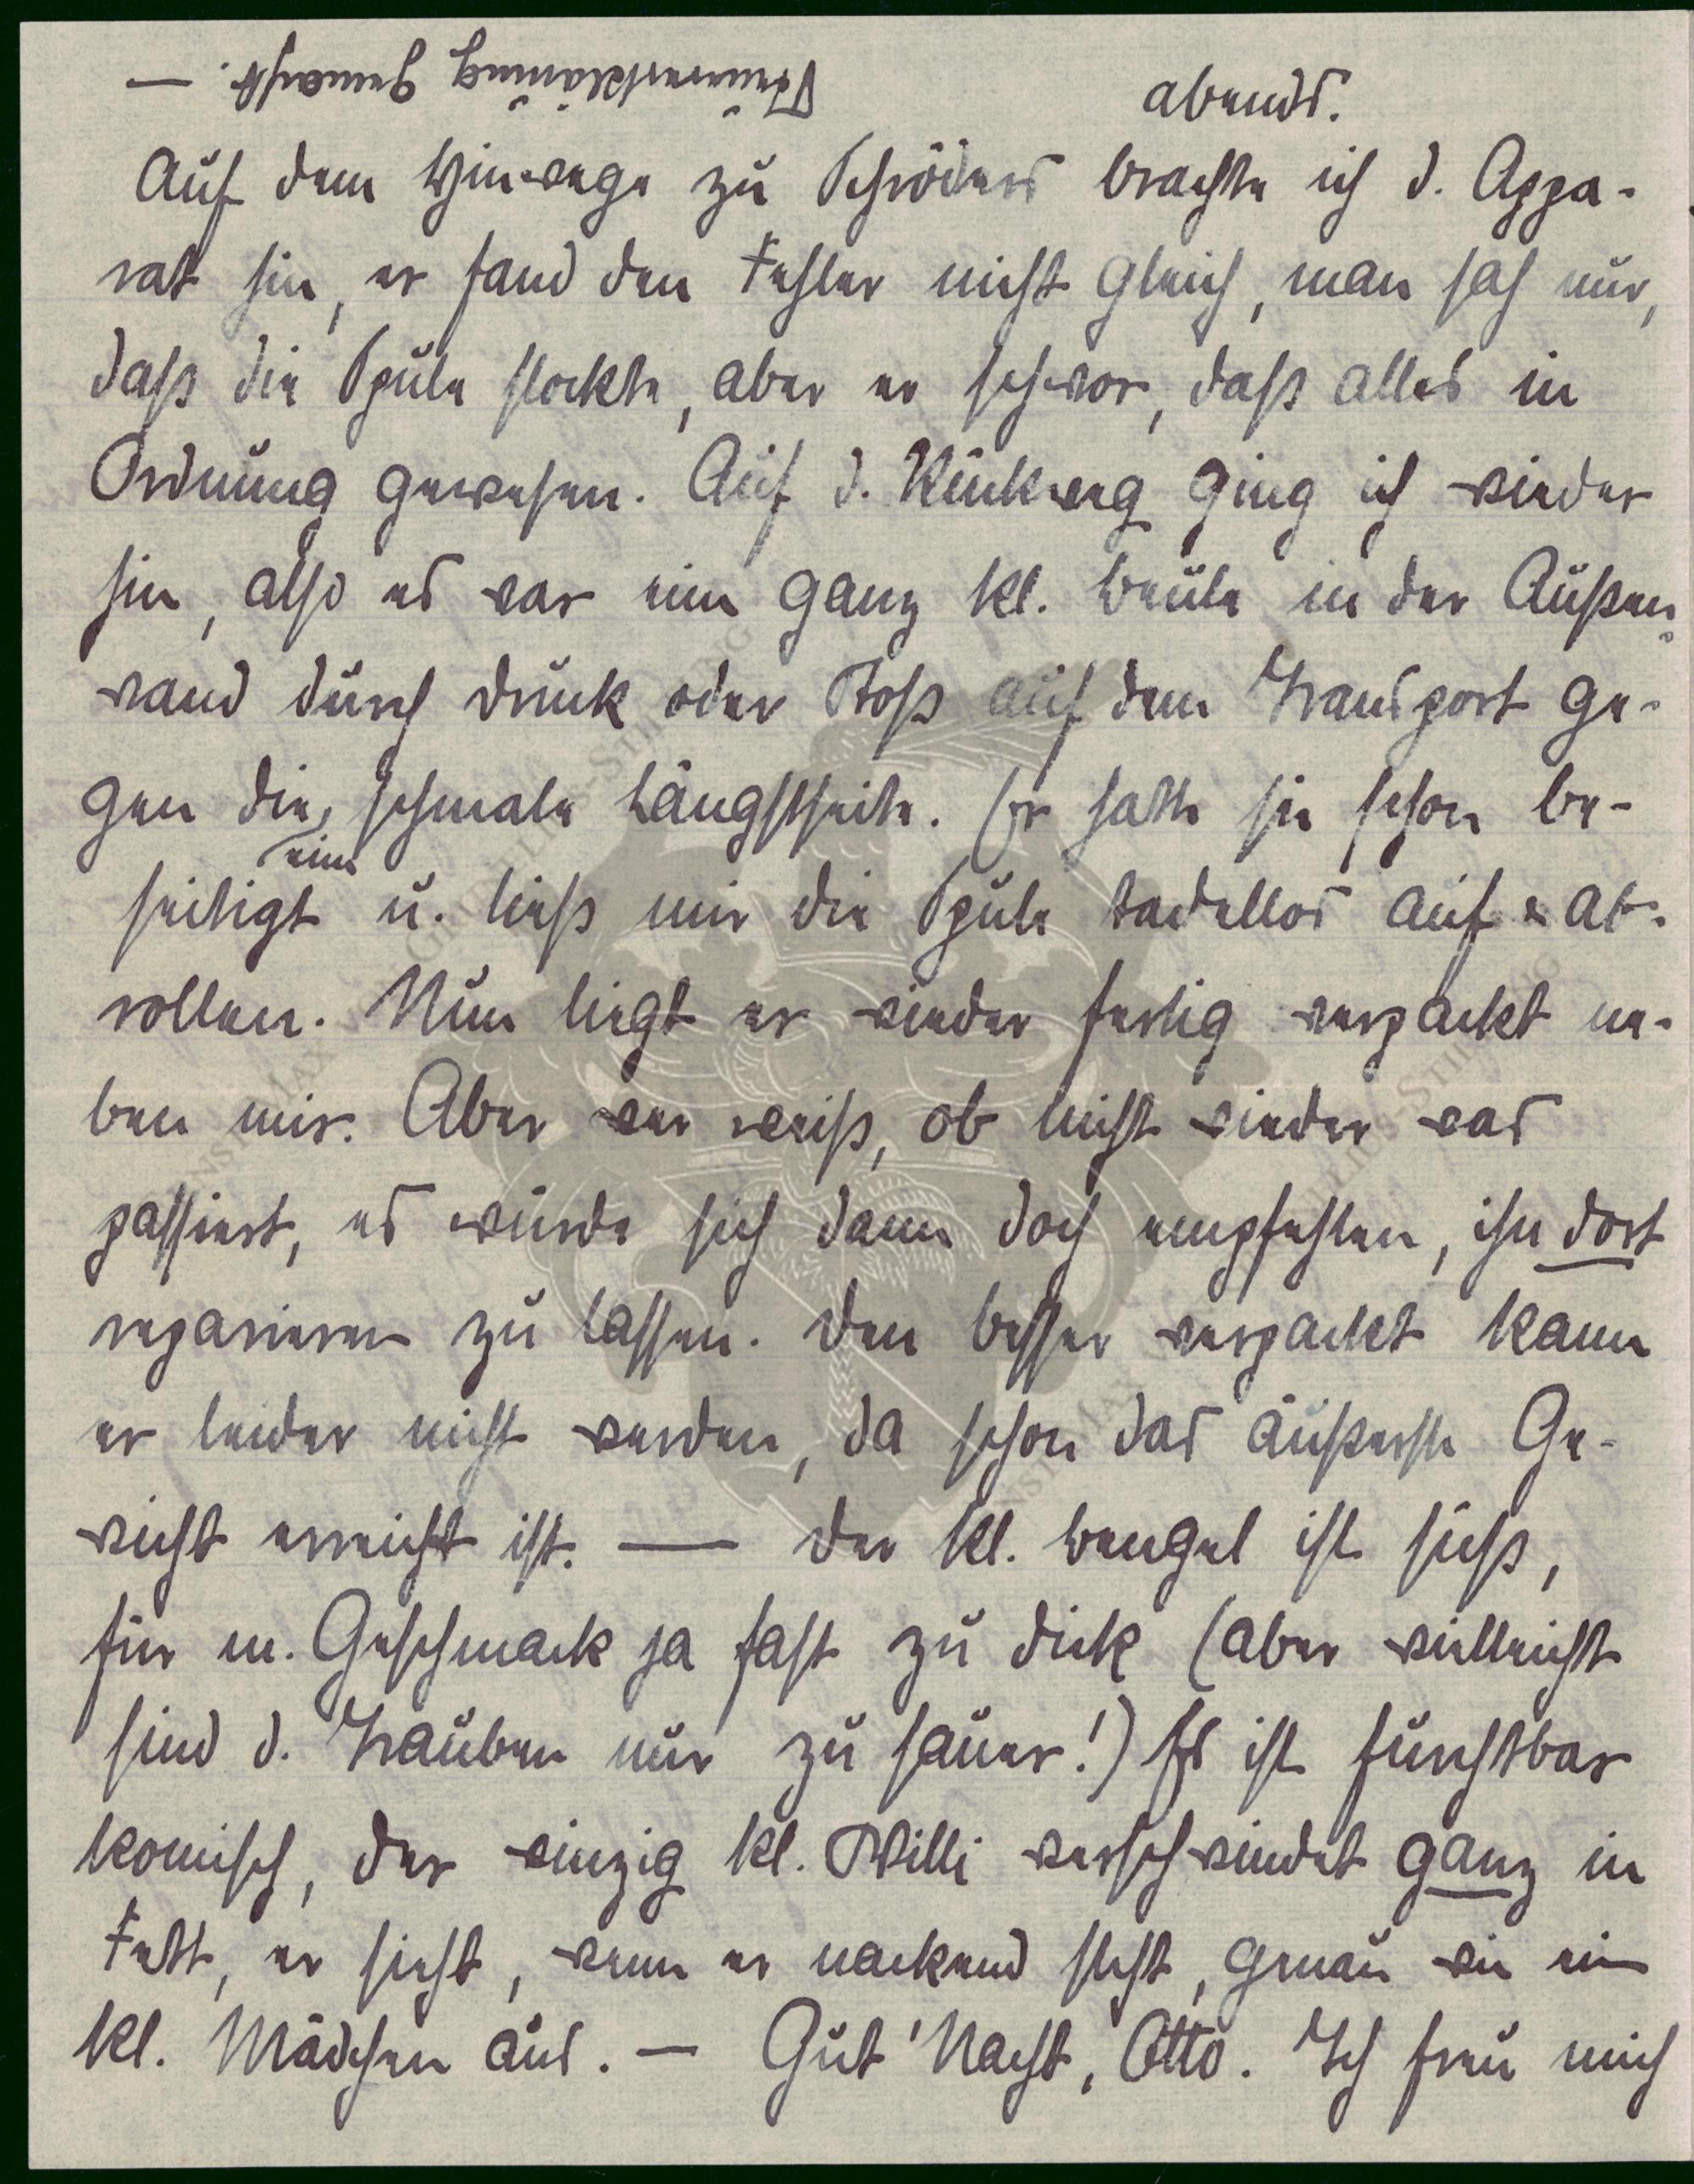 abends.
Auf dem Hinwege zu Schröders brachte ich d. Appa-
rat hin, er fand den Fehler nicht gleich, man sah nur,
daß die Spule stockte, aber er schwor, daß alles in
Ordnung gewesen. Auf d. Rückweg ging ich wieder
hin, also es war eine ganz kl. Beule in der Außen-
wand durch Druck oder Stoß auf dem Transport ge-
gen die, schmale Längstseite. Er hatte sie schon be-
eine
seitigt u. ließ mir die Spule tadellos auf & ab-
rollen. Nun liegt er wieder fertig verpackt ne-
ben mir. Aber wer weiß, ob nicht wieder was
passiert, es würde sich dann doch empfehlen, ihn dort
reparieren zu lassen. Den besser verpackt kann
er leider nicht werden, da schon das äußerste Ge-
wicht erreicht ist. — Der kl. Bengel ist süß,
für m. Geschmack ja fast zu dick (aber vielleicht
sind d. Trauben nur zu sauer!) Es ist furchtbar
komisch, der winzig kl. Willi verschwindet ganz in
Fett, er sieht, wenn er nackend steht, genau wie ein
kl. Mädchen aus. — Gut' Nacht, Otto. Ich freu mich